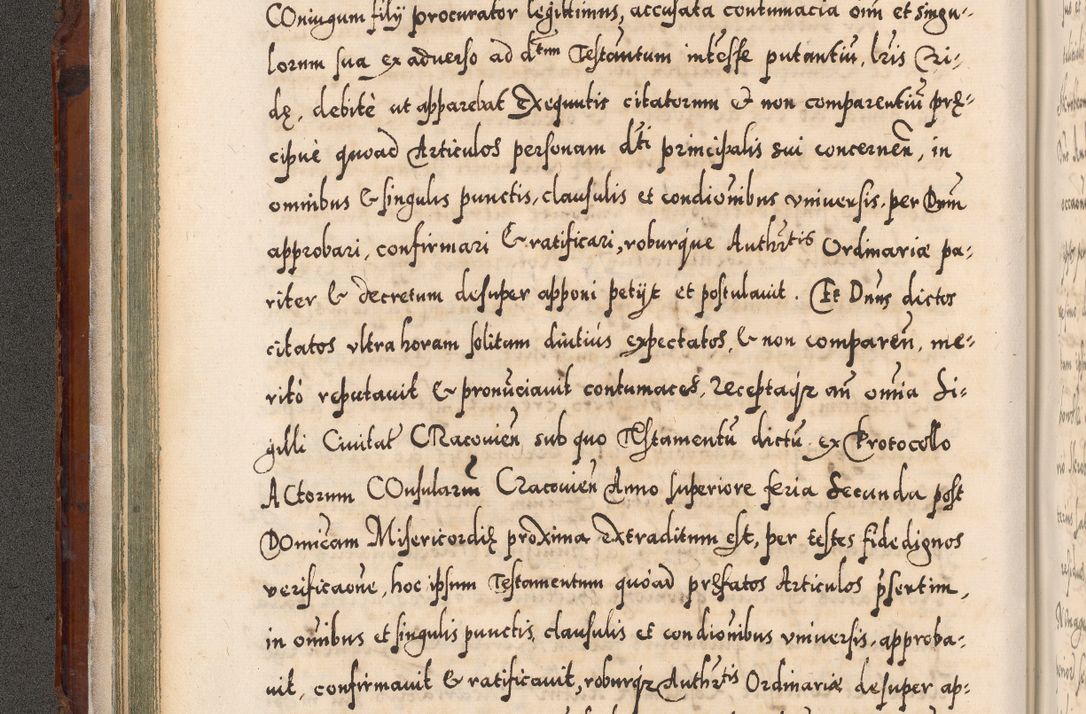 COniugum filÿ procurator legittimus, accusata contumacia oīm et singu-
lorum sua ex aduerso ad dtum Testantum intēsse putantiū, lris Cri-
dę, debitè ut apparebat Exequutis citatorum & non comparentiū prę-
cipuè quoad Articulos personam dti principalis sui concerneñ, in
omnibus & singulis punctis, clausulis et condiōnibus vniuersis, per Dnm
approbari, confirmari & ratificari, roburque Authrtis Ordinariæ pa-
riter & decretum desuper apponi petijt et postulauit. Et Dnus dictos
citatos vltra horam solitam diutiùs expectatos, & non compareñ, me-
ritò reputauit & pronūciauit contumaces, receptaqз añ omnia Si-
gilli Ciuitat CRacouien sub quo Testamentū dictū ex Protocollo
ACtorum COnsularm̄ Cracouieñ Anno superiore feria Secunda post
Domicam Misericordię proxima Extraditum est, per testes fide dignos
verificaōne, hoc ipsum Testamentum quoad pręfatos Articulos p̄sertim,
in om̄ibus et singulis punctis, clausulis et condiōnibus vniuersis, approba-
uit, confirmauit & ratificauit, roburqз Authrtis Ordinariæ desuper ap-